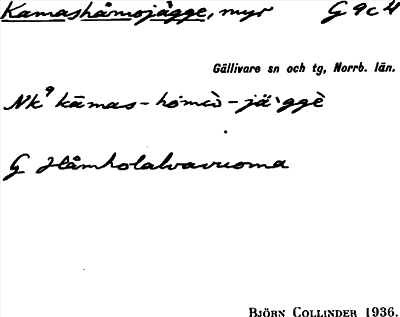 Kamashåmojägge, myr G 9c4
Gällivare sn och tg, Norrb. län.
Nk⁹ kāmas-hȯmcò-jä`ggè
G Håmholalvavuoma
BJÖRN COLLINDER 1936.